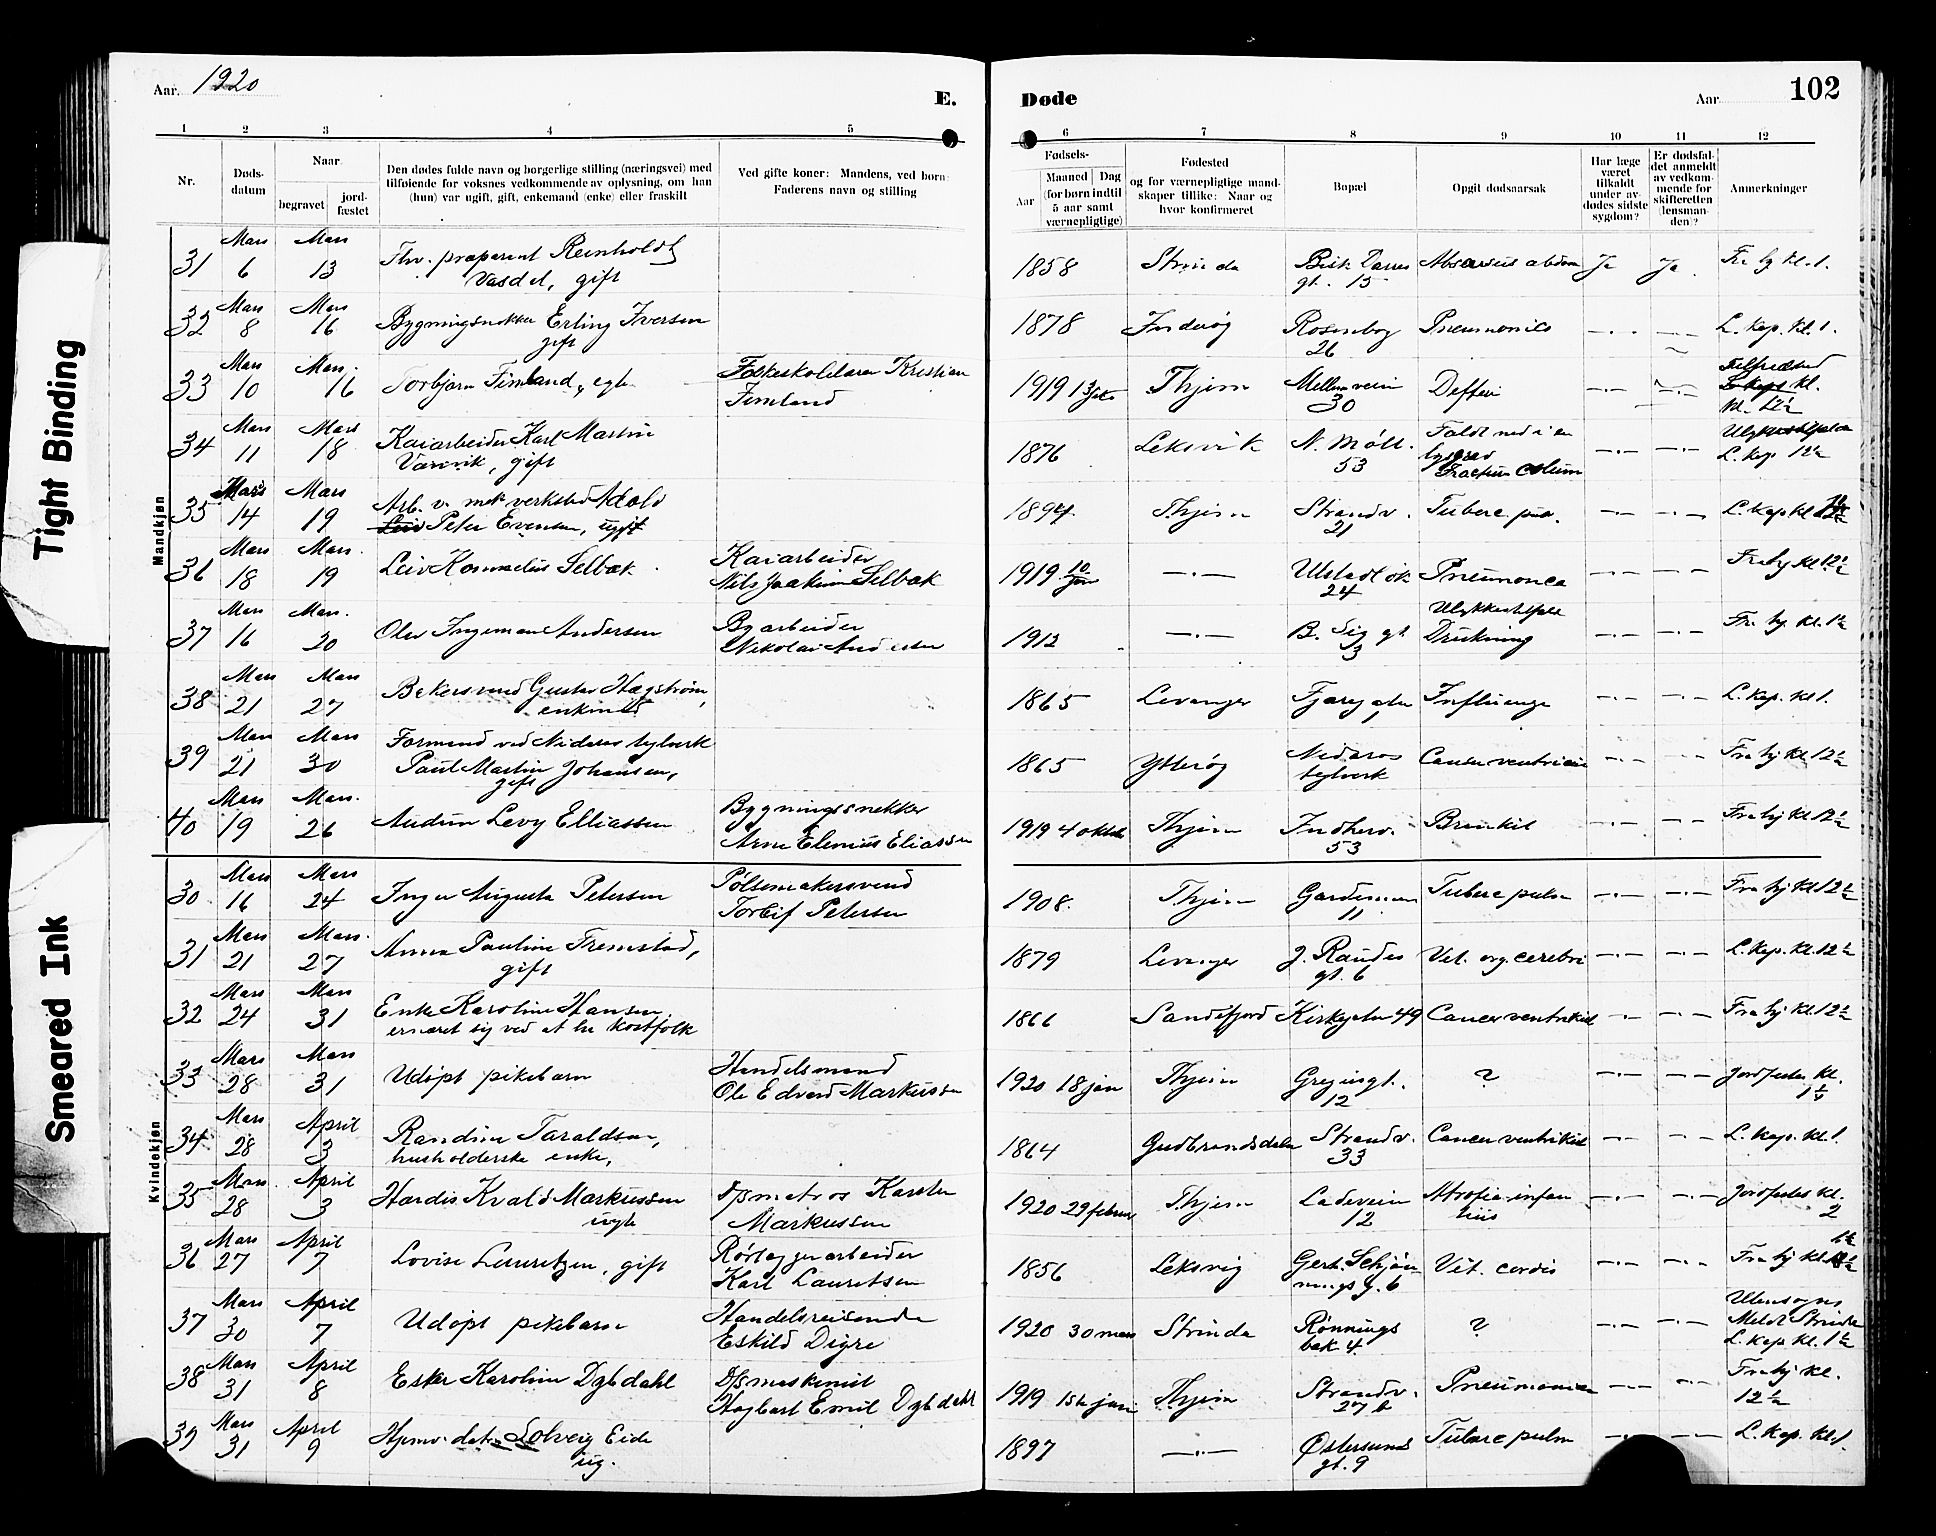 Tight Binding
Smeared Ink
Aar. 1920
E.
Døde
Aar
102
1 2 3 4 5 6 7 8 9 10 11 12
Nr.
Døds-
datum
Naar
begravet
jord-
fæstet
Den dødes fulde navn og borgerlige stilling (næringsvei) med
tilføiende for voksnes vedkommende av oplysning, om han
(hun) var ugift, gift, enkemand (enke) eller fraskilt
Ved gifte koner: Mandens, ved børn:
Faderens navn og stilling
Fødsels-
Aar
Maaned
Dag
(for børn indtil
5 aar samt
værnepligtige)
Fødested
og for værnepligtige mand-
skaper tillike: Naar og
hvor konfirmeret
Bopæl
Opgit dødsaarsak
Har læge
været
tilkaldt
under av-
dødes sidste
sygdom?
Er dødsfal-
det anmeldt
av vedkom-
mende for
skifteretten
(lensman-
den)?
Anmerkninger
Mandkjøn
31 Mars 6 Mars 13 præparent Reinholdt
Vasdel, gift
1858 Strinda
gt. 15
Ja Ja kl. 1.
32 Mars 8 Mars 16 Bygningsnekker Erling Iversen
gift
1878 Inderøy Rosenborg
26
L. kap. kl. 1.
33 Mars 10 Mars 16 Torbjørn Fimland, egte
Folkeskolelærer Kristian
Fimland
1919 Thjem Mellemveien
30
Difteri
kl. 12½
34 Mars 11 Mars 18 Kaiarbeider Karl Martin
gift
1876 Leksvik N. Møll.
53
Faldt ned i en
L. kap 12½
35 Mars 14 Mars 19 Arb. v. mek verksted Adolv
Peter Evensen, ugift
1894 Thjem Strandv.
21
Tuberc pul.
L. kap kl
36 Mars 18 Mars 19 Leiv Kornelius Selbæk
Kaiarbeider
Nils Joakim Selbæk
1919 10/jan
24
Pneumonia
kl 12½
37 Mars 16 Mars 20 Olav Ingeman Andersen
Byarbeider
Nikolai Andersen
1912
3
Ulykkestilfælde
Drukning
38 Mars 21 Mars 27 Bakersvend Gustav Hægstrøm,
enkemand
1865 Levanger Fjæregaten
Influenza
L. kap. kl 1.
39 Mars 21 Mars 30 Formand ved Nidaros teglverk
Paul Martin Johansen,
gift
1865 Ytterøy Nidaros
teglverk
Cancer ventriculi
kl 12½
40 Mars 19 Mars 26 Audun Levy Elliassen
Bygningssnekker
Arne Elenius Eliassen
1919 4 oktob Thjem Indherv.
53
kl 12½
Kvindekjøn
30 Mars 16 Mars 24 Inger Augusta Petersen
Pølsemakersvend
Torleif Petersen
1908 Thjem
11
Tuberc pulm
kl 12½
31 Mars 21 Mars 27 Anna Pauline Fremstad,
gift
1879 Levanger J. Randes
gt. 6
Vit. org. cerebri
L. kap. kl 12½
32 Mars 24 Mars 31 Enke Karoline Hansen,
ernæret sig ved at ha kostfolk
1866 Sandefjord Kirkegaten 49 Cancer ventrikel
kl. 12½
33 Mars 28 Mars 31 Udøpt pikebarn
Handelsmand
Ole Edvard Markussen
1920 18 jan Thjem
12
?
Jordfestes kl.
34 Mars 28 April 3 Randine Taraldsen,
husholderske enke,
1864 Gudbrandsdalen Strandv.
33
Cancer ventrikel
L. kap. kl 1.
35 Mars 28 April 3 Hardis Kvald Markussen
Karsten
Markussen
1920 29 februar Thjem Ladeveien
12
Atrofia infan
tilis
Jordfestes kl.
2
36 Mars 27 April 7 Lovise Lauritzen, gift
Rørlæggerarbeider
Karl Lauritsen
1856 Leksvig Gerh. Schjøn
nings g. 6
Vit. cordis
37 Mars 30 April 7 Udøpt pikebarn
Handelsreisende
Eskild Digre
1920 30 mars Strinda Rønnings
bak 4
?
Utensogns
Meldt Strinda
L. kap kl. 1½
38 Mars 31 April 8 Ester Karoline Dybdahl
Dsmaskinist
Hagbart Emil Dybdahl
1919 Thjem Strandv.
27 b
Pneumonia
12½
39 Mars 31 April 9 Solveig Eide
ug.
1897 Østersunds
gt. 9
Tuberc pulm
L. kap. kl. 1.